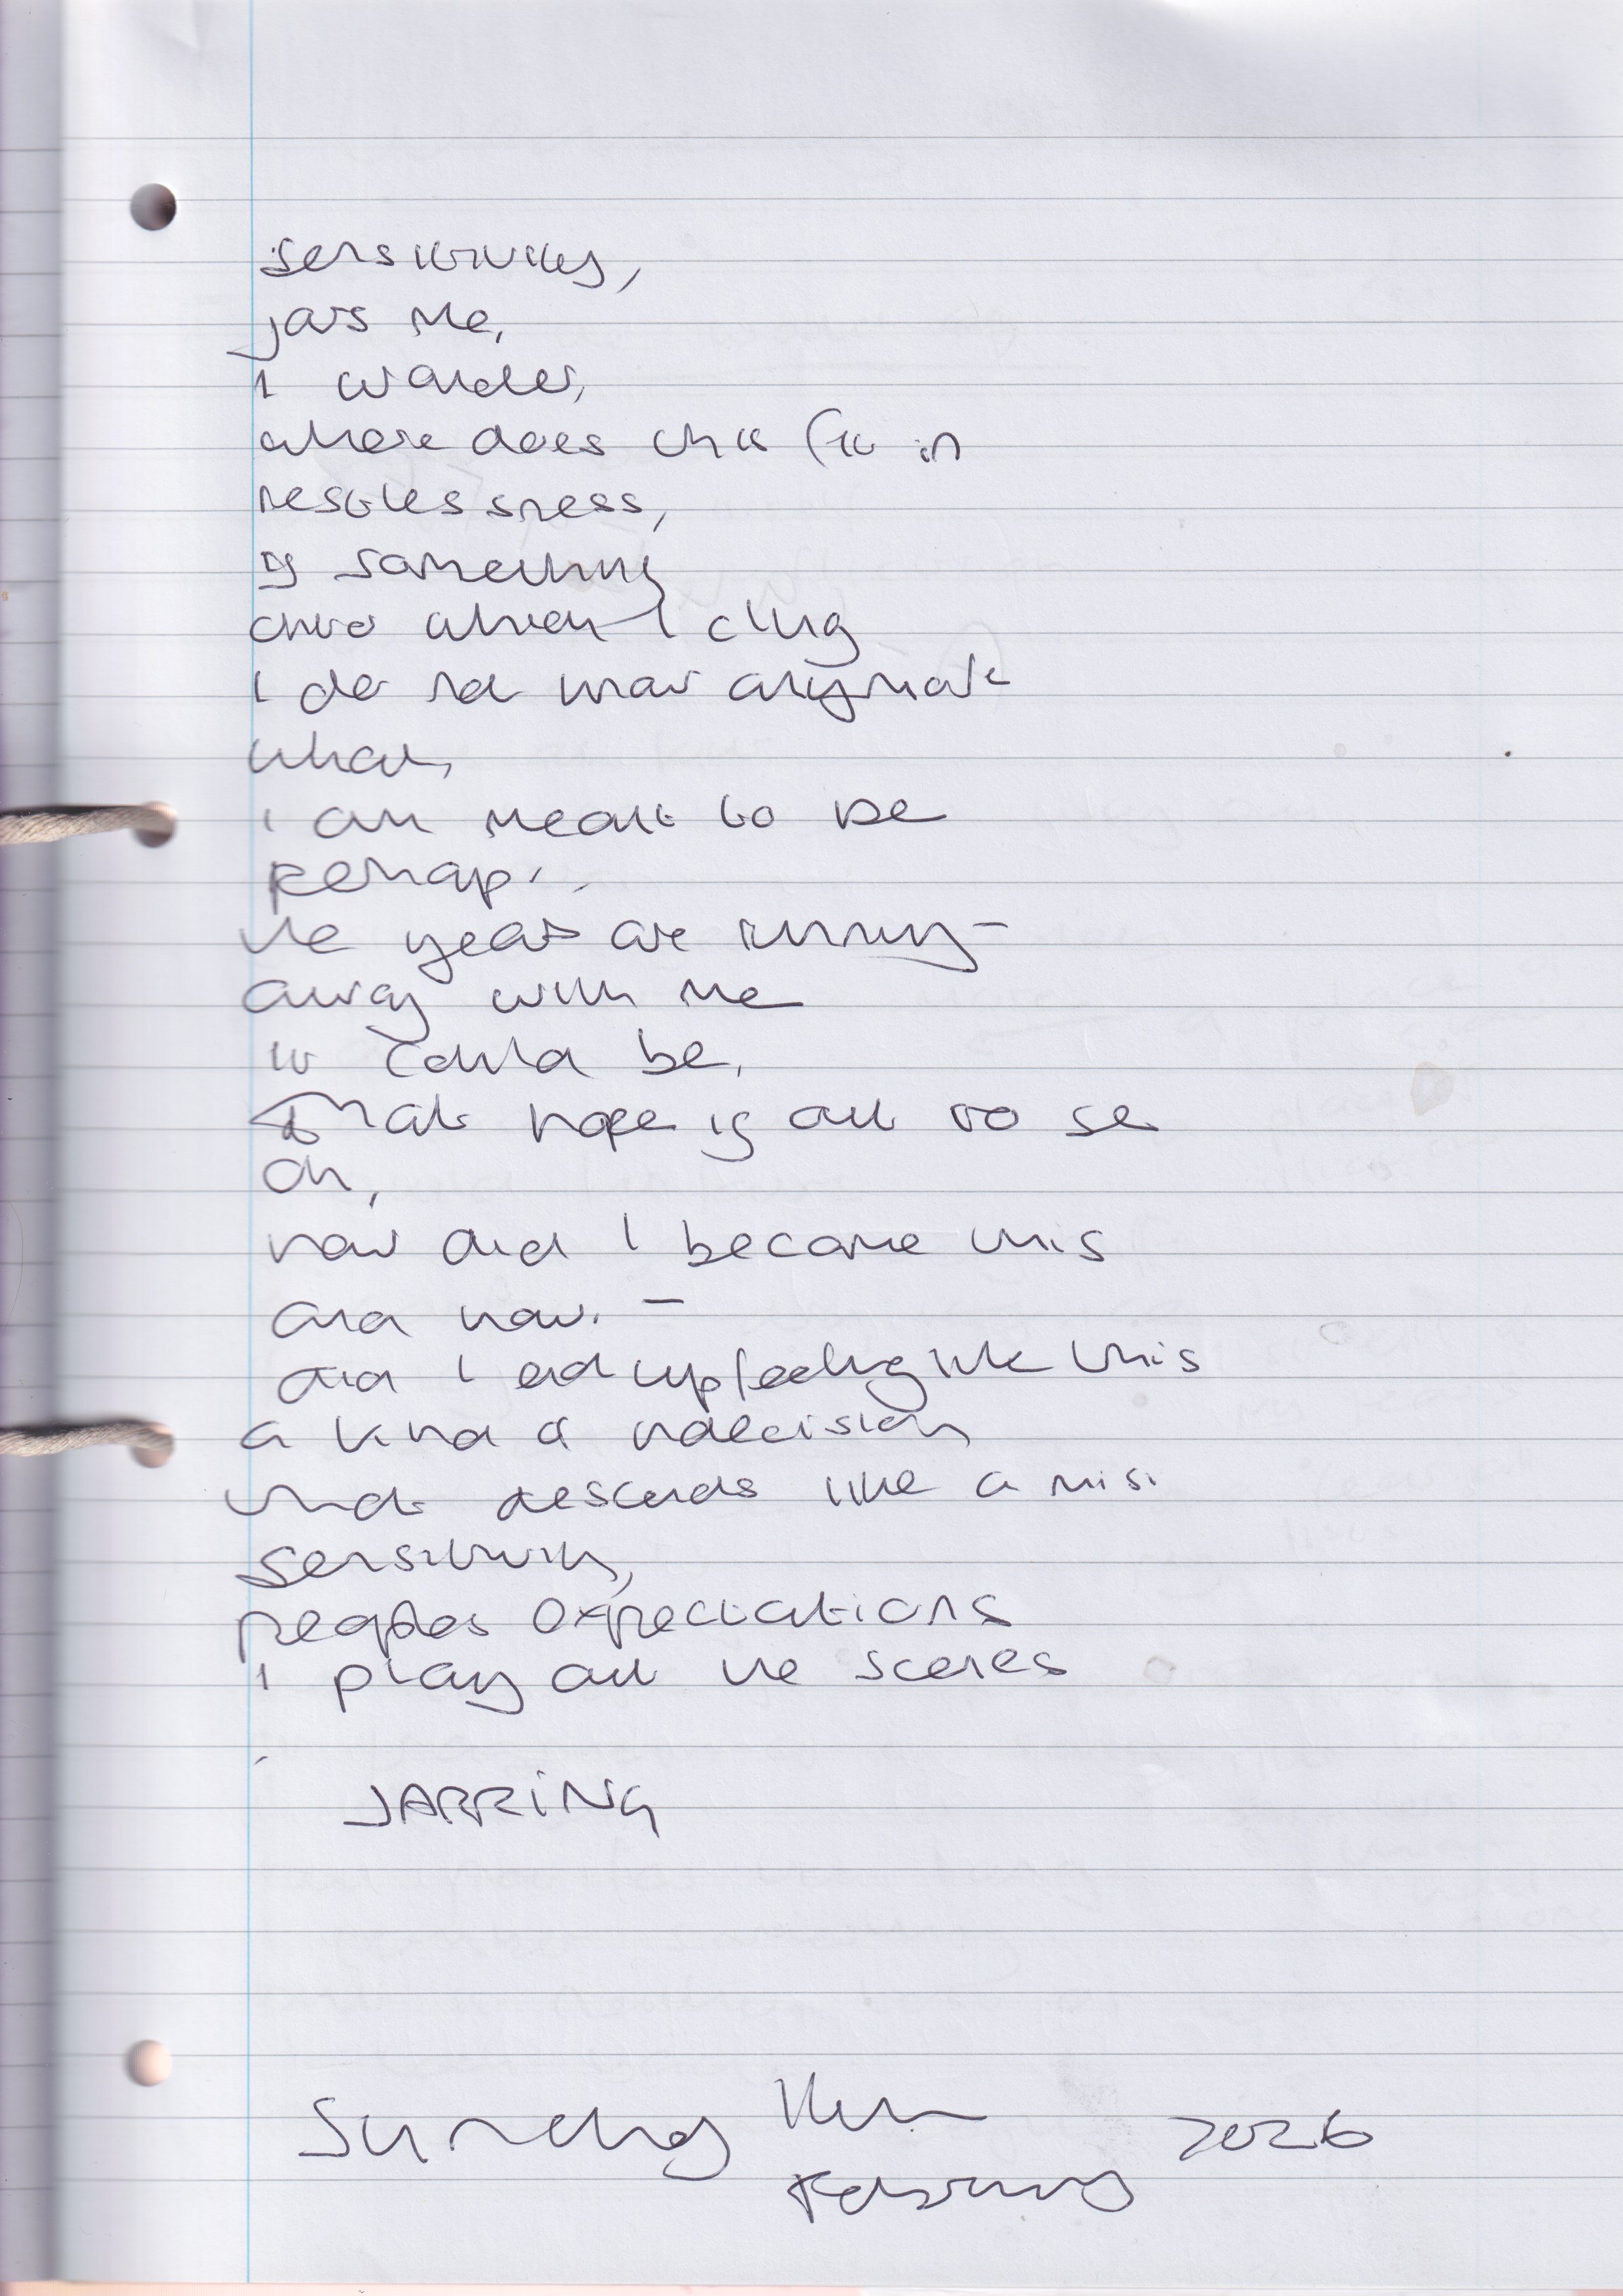 sensitivity,
jars me,
I wonder,
where does this fit in
restlessness,
is something
onto which I cling
I do not know anymore
what,
I am meant to be
perhaps,
the years are running -
away with me
it could be,
that hope is all to see
oh,
how did I become this
and how. -
did I end up feeling like this
a kind of indecision
that descends like a mist
sensitivity,
peoples expectations
I play out the scenes
JARRING
Sunday
February 2026